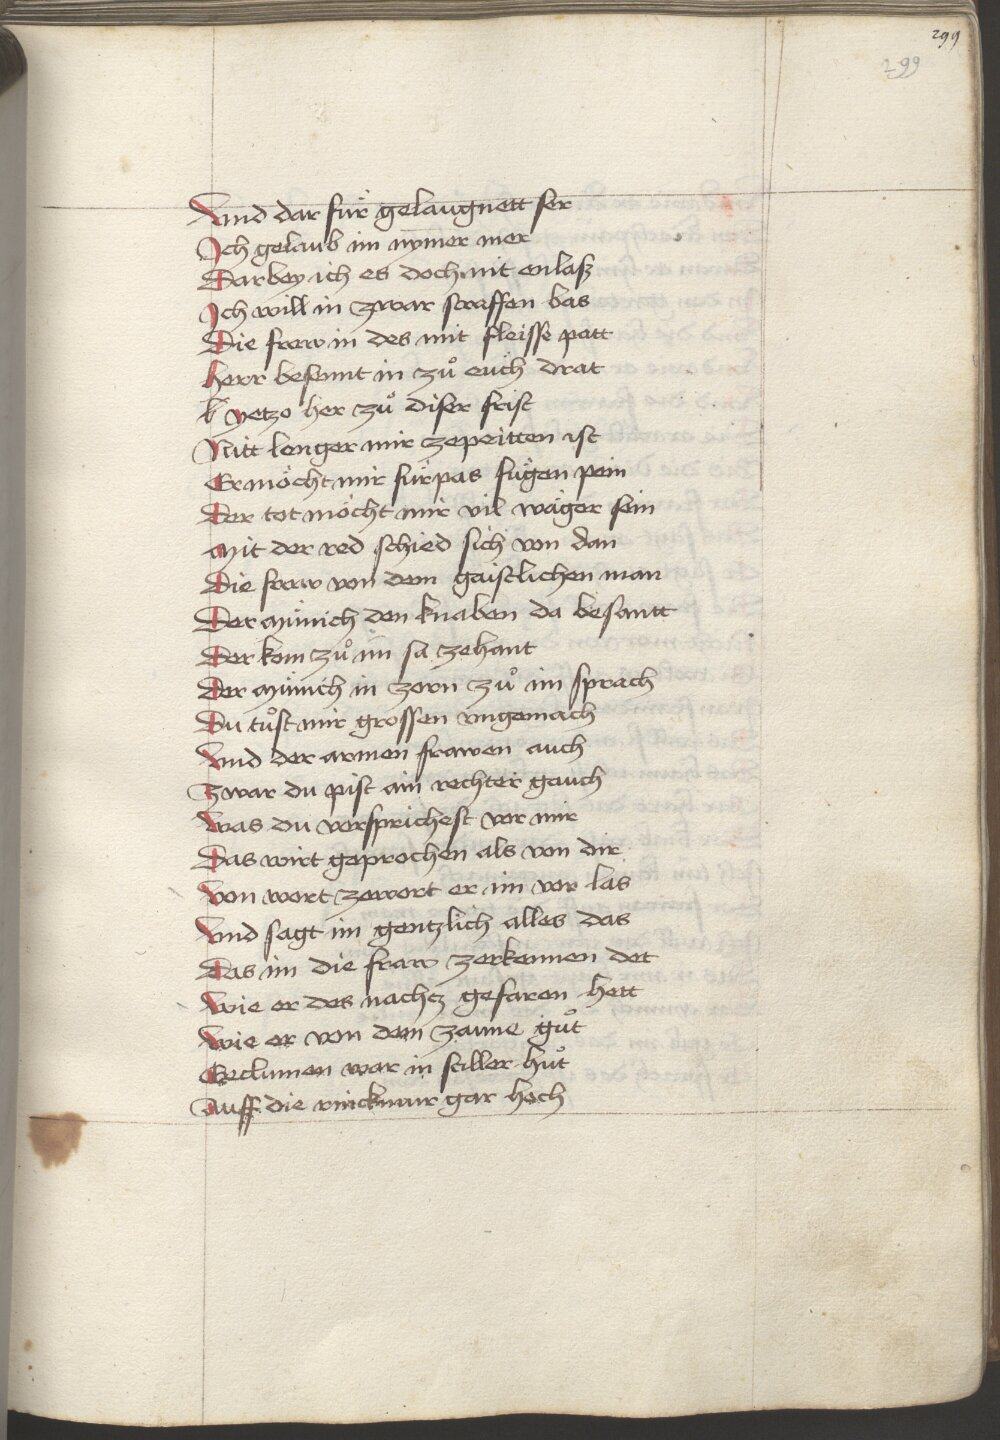 299
299
Vnd dar für gelaugnett ser
Ich gelaub im nymer mer
Darbey ich es doch nit enlaß
Ich will in zwar straffen bas
Die fraw in des mit fleisse pett
herr besennt in zů euch drat
yetzo her zů diser frist
Nitt lenger mir zepeitten ist
Er möcht mir fürpas fügen pein
Der tot möcht mir vil wäger sein
Mit der red schied sich von dan
Die fraw von dem gaistlichen man
Der münich den knaben da besantt
Der kom zů im sa zehant
Der münich in zorn zů im sprach
Du tůst mir grossen vngemach
Vnd der armen frawen auch
Zwar du pist ain rechter gauch
Was du versprichest vor mir
Das wirt geprochen als von dir
Von wort zewort er im vor las
Vnd sagt im gentzlich alles das
Das im die fraw zerkennen det
Wie er des nachtz gefaren hett
Wie er von dem zaune gůt
Geclumen war in stiller hůt
Auff die rinckmur gar hoch